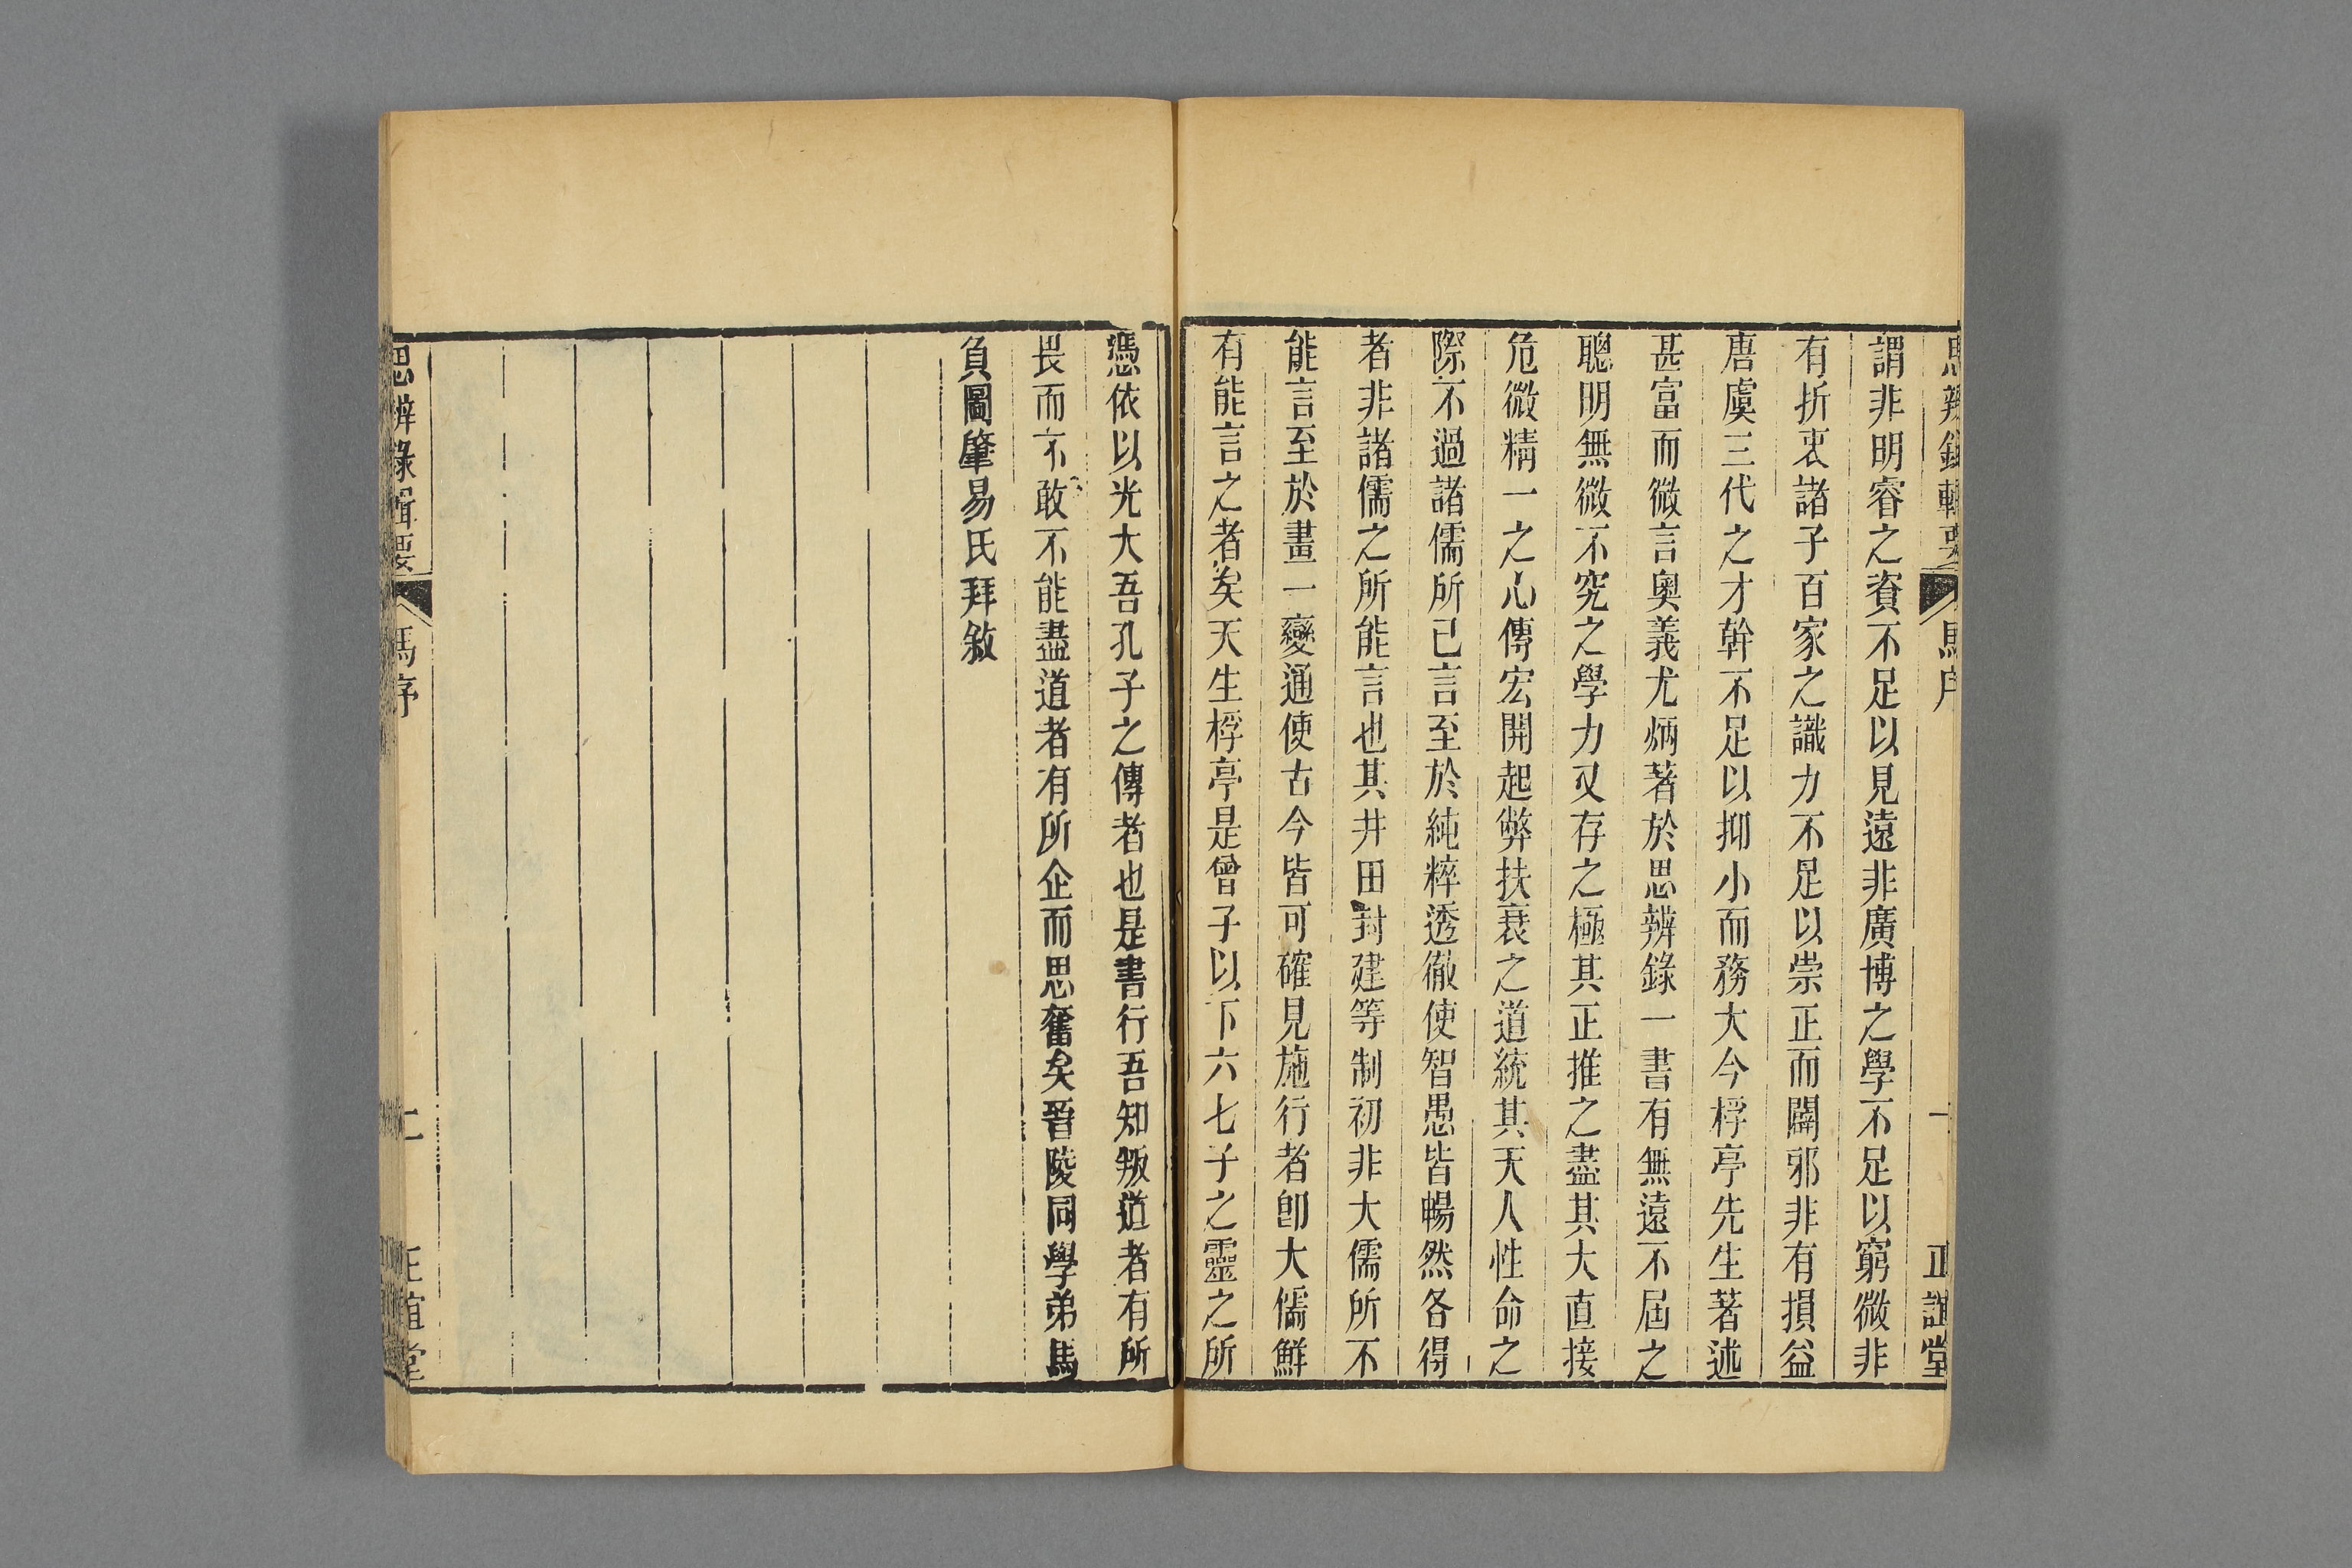 思辨錄輯要
馬序
一
正誼堂
謂非明睿之資不足以見遠非廣博之學不足以窮微非
有折衷諸子百家之識力不足以崇正而闢邪非有損益
唐虞三代之才幹不足以抑小而務大今桴亭先生著述
甚富而微言奧義尤炳著於思辨錄一書有無遠不屆之
聰明無微不究之學力又存之極其正推之盡其大直接
危微精一之心傳宏開起弊扶衰之道統其天人性命之
際不過諸儒所已言至於純粹透徹使智愚皆暢然各得
者非諸儒之所能言也其井田封建等制初非大儒所不
能言至於畫一變通使古今皆可確見施行者卽大儒鮮
有能言之者矣天生桴亭是曾子以下六七子之靈之所
憑依以光大吾孔子之傳者也是書行吾知叛道者有所
畏而不敢不能盡道者有所企而思奮矣晉陵同學弟馬
負圖肇易氏拜敘
思辨錄輯要
馬序
二
正誼堂